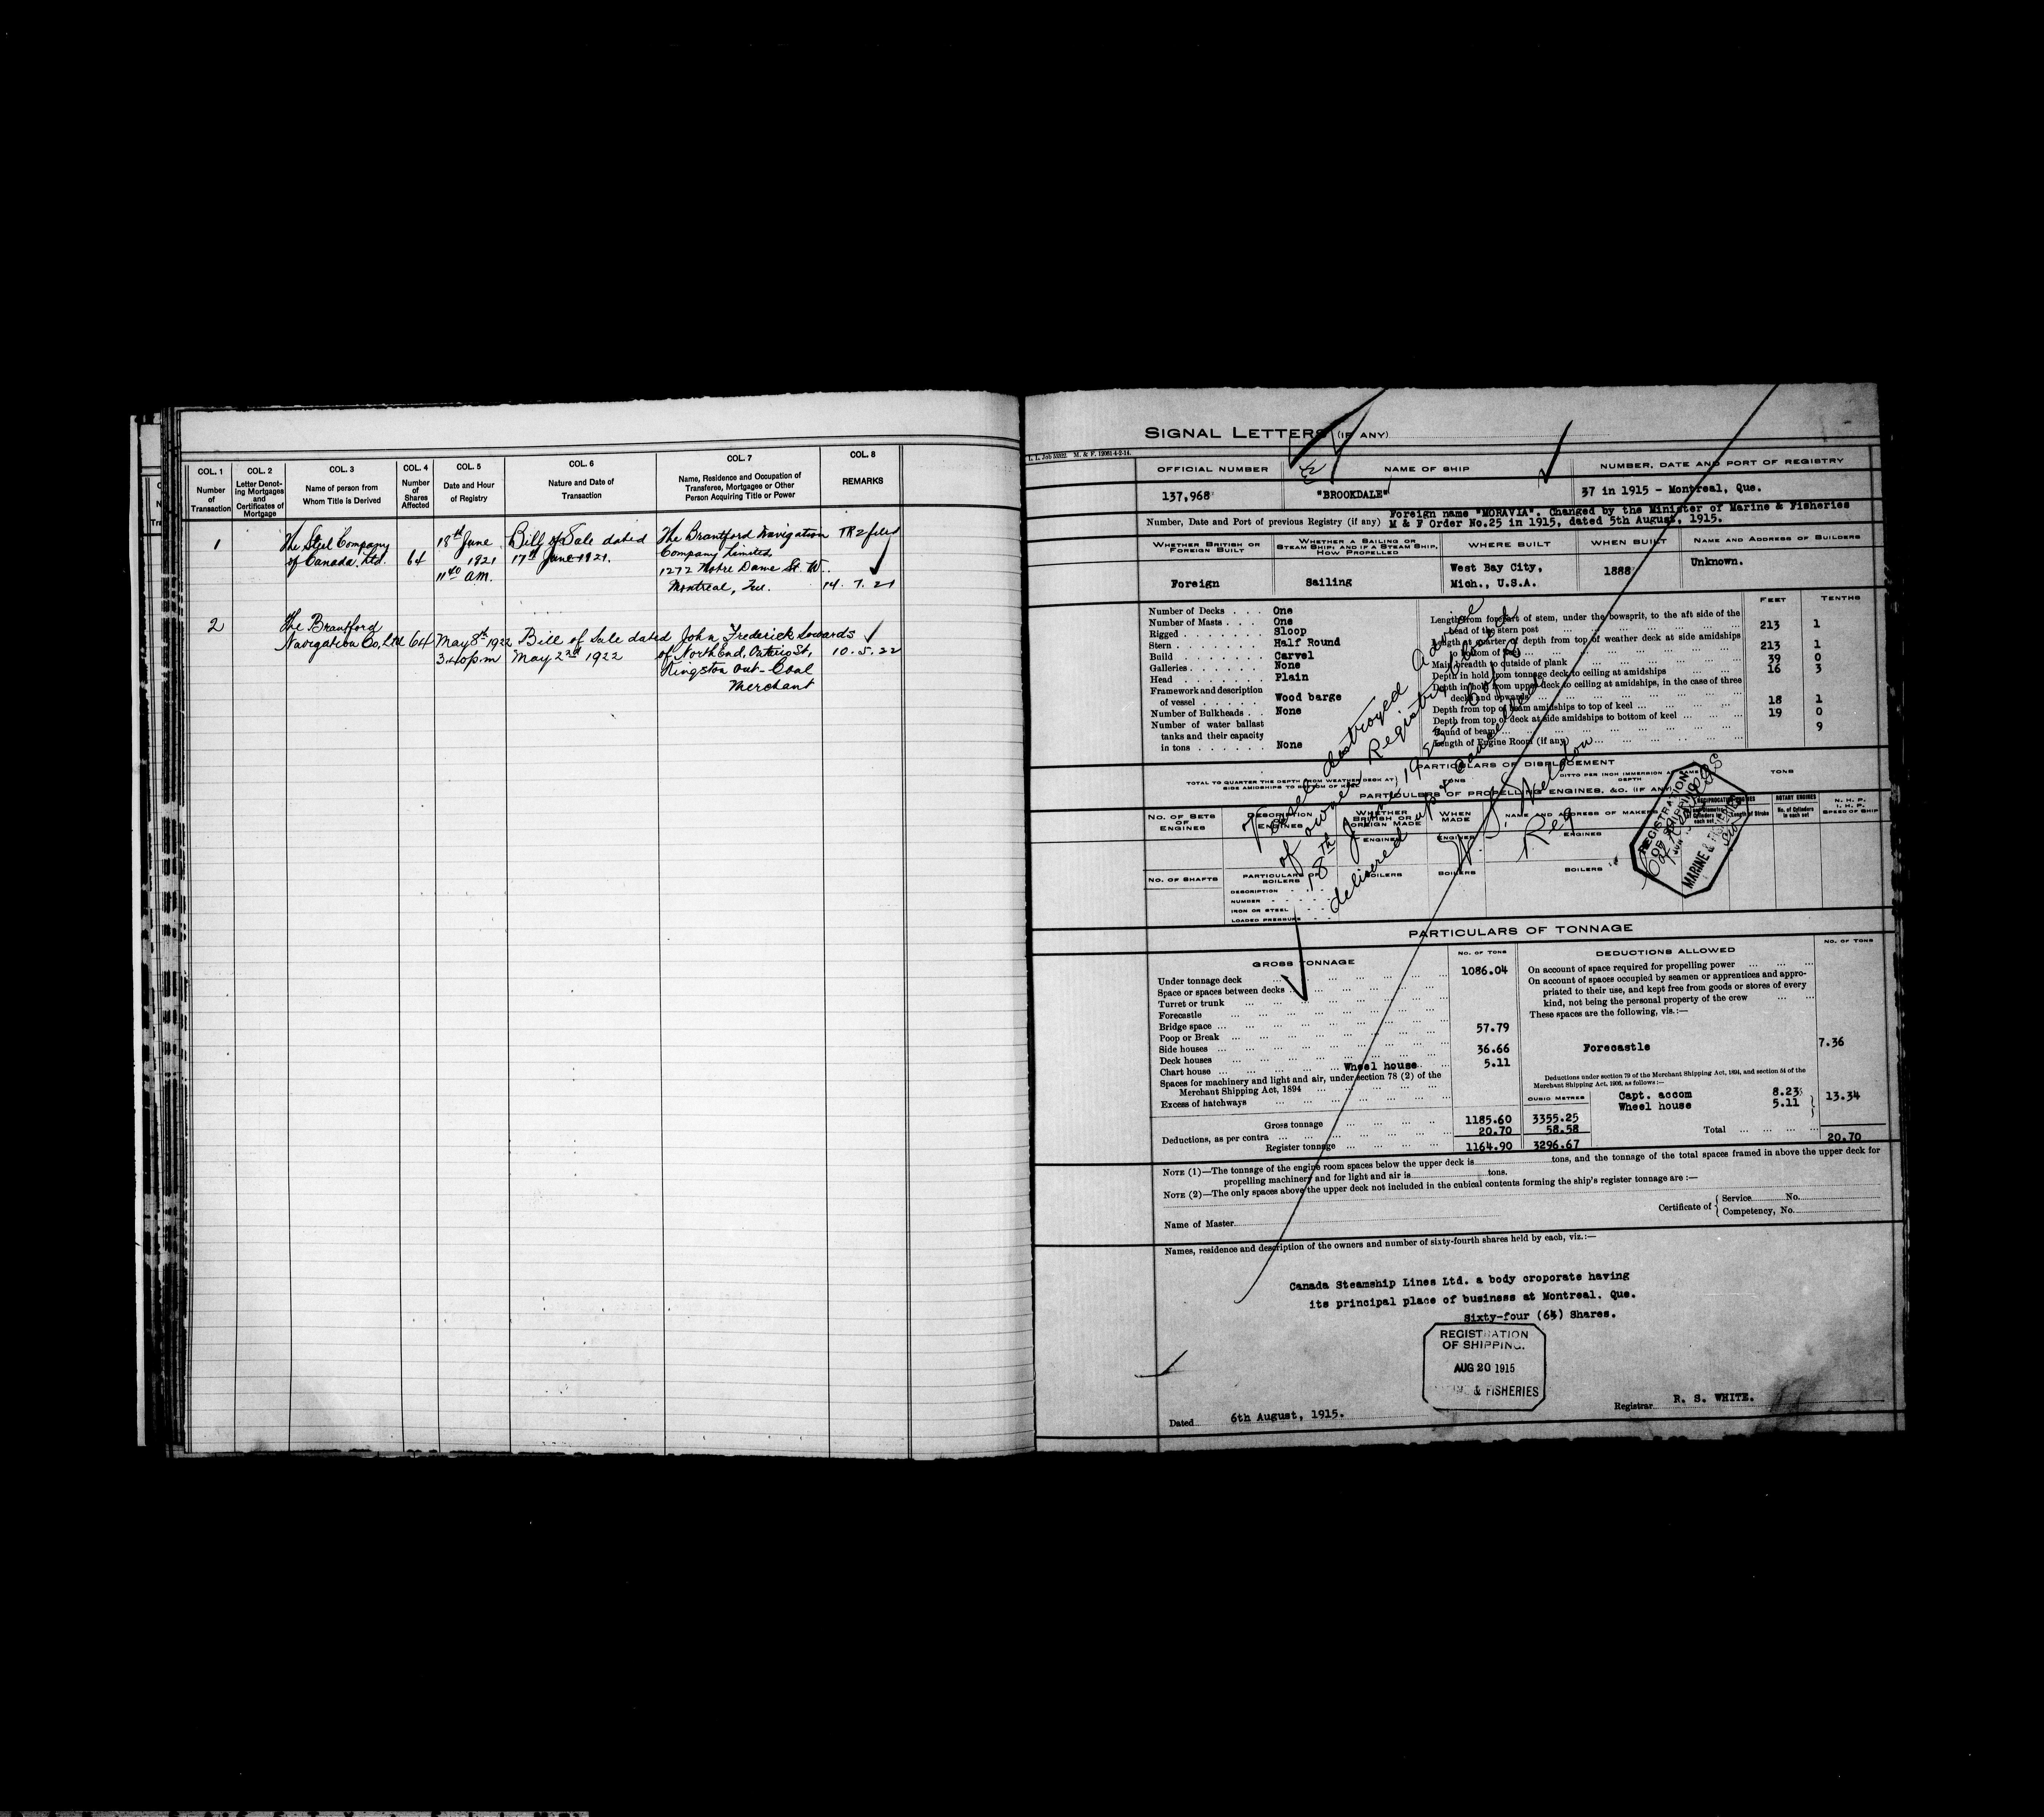 COL. 1 COL. 2 COL. 3 COL. 4 COL. 5 COL. 6 COL. 7 COL. 8
Number of Transaction
Letter Denoting Mortgages and Certificates of Mortgage
Name of person from Whom Title is Derived
Number of Shares Affected
Date and Hour of Registry
Nature and Date of Transaction
Name, Residence and Occupation of Transferee, Mortgagee or Other Person Acquiring Title or Power
REMARKS
1 The Steel Company 18th June Bill of Sale dated The Brantford Navigation TR2 filed
of Canada, Ltd. 64 1921 17th June 1921. Company Limited
11:40 A.M. 1272 Notre Dame St. W.
Montreal, Que. 14. 7. 21
2 The Brantford
Navigation Co, Ltd 64 May 8th 1922 Bill of Sale dated John Frederick Sowards
3.40 p.m May 2nd 1922 of North End, Ontario St, 10. 5. 22
Kingston Ont- Coal
Merchant
SIGNAL LETTERS (IF ANY)
L. L. Job 53322. M. & F. 12061 4-2-14.
OFFICIAL NUMBER NAME OF SHIP NUMBER, DATE AND PORT OF REGISTRY
137,968 "BROOKDALE" 37 in 1915 - Montreal, Que.
Foreign name "MORAVIA". Changed by the Minister of Marine & Fisheries
Number, Date and Port of previous Registry (if any) M & F Order No.25 in 1915, dated 5th August, 1915.
WHETHER BRITISH OR FOREIGN BUILT
WHETHER A SAILING OR STEAM SHIP, AND IF A STEAM SHIP, HOW PROPELLED
WHERE BUILT
WHEN BUILT
NAME AND ADDRESS OF BUILDERS
Foreign Sailing West Bay City, Mich., U.S.A. 1888 Unknown.
FEET TENTHS
Number of Decks One
Number of Masts One
Rigged Sloop
Stern Half Round
Build Carvel
Galleries None
Head Plain
Framework and description of vessel Wood barge
Number of Bulkheads None
Number of water ballast tanks and their capacity in tons None
Length from forepart of stem, under the bowsprit, to the aft side of the head of the stern post 213 1
Length at quarter of depth from top of weather deck at side amidships to bottom of keel 213 1
Main breadth to outside of plank 39 0
Depth in hold from tonnage deck to ceiling at amidships 16 3
Depth in hold from upper deck to ceiling at amidships, in the case of three decks and upwards
Depth from top of beam amidships to top of keel 18 1
Depth from top of deck at side amidships to bottom of keel 19 0
Round of beam 9
Length of Engine Room (if any)
Vessel destroyed Advice
of owner Registry closed
18th June, 1923 Cof R
delivered up & cancelled
Reg
PARTICULARS OF DISPLACEMENT
TOTAL TO QUARTER THE DEPTH FROM WEATHER DECK AT SIDE AMIDSHIPS TO BOTTOM OF KEEL TONS
DITTO PER INCH IMMERSION AT SAME DEPTH TONS
PARTICULARS OF PROPELLING ENGINES, &C. (IF ANY)
NO. OF SETS OF ENGINES
DESCRIPTION OF ENGINES
WHETHER BRITISH OR FOREIGN MADE
WHEN MADE
NAME AND ADDRESS OF MAKERS
RECIPROCATING ENGINES
ROTARY ENGINES
No. of Cylinders in each set
Length of Stroke
N. H. P.
I. H. P.
SPEED OF SHIP
ENGINES ENGINES ENGINES
NO. OF SHAFTS
PARTICULARS OF BOILERS
BOILERS BOILERS BOILERS
DESCRIPTION
NUMBER
IRON OR STEEL
LOADED PRESSURE
REGISTRATION OF SHIPPING
MARINE & FISHERIES
PARTICULARS OF TONNAGE
GROSS TONNAGE NO. OF TONS DEDUCTIONS ALLOWED NO. OF TONS
Under tonnage deck 1086.04
Space or spaces between decks
Turret or trunk
Forecastle
Bridge space
Poop or Break 57.79
Side houses
Deck houses 36.66
Chart house Wheel house 5.11
Spaces for machinery and light and air, under section 78 (2) of the
Merchant Shipping Act, 1894
Excess of hatchways
Gross tonnage 1185.60 3355.25
Deductions, as per contra 20.70 58.58
Register tonnage 1164.90 3296.67
On account of space required for propelling power
On account of spaces occupied by seamen or apprentices and appro-
priated to their use, and kept free from goods or stores of every
kind, not being the personal property of the crew
These spaces are the following, vis.:—
Forecastle 7.36
Deductions under section 79 of the Merchant Shipping Act, 1894, and section 54 of the
Merchant Shipping Act, 1906, as follows:—
CUBIC METRES
Capt. accom 8.23
Wheel house 5.11 13.34
Total 20.70
NOTE (1)—The tonnage of the engine room spaces below the upper deck is tons, and the tonnage of the total spaces framed in above the upper deck for
propelling machinery and for light and air is tons.
NOTE (2)—The only spaces above the upper deck not included in the cubical contents forming the ship's register tonnage are:—
Name of Master
Certificate of { Service No.
Competency, No.
Names, residence and description of the owners and number of sixty-fourth shares held by each, viz.:—
Canada Steamship Lines Ltd. a body croporate having
its principal place of business at Montreal. Que.
Sixty-four (64) Shares.
REGISTRATION
OF SHIPPING.
AUG 20 1915
& FISHERIES
Dated 6th August, 1915.
Registrar R. S. WHITE.